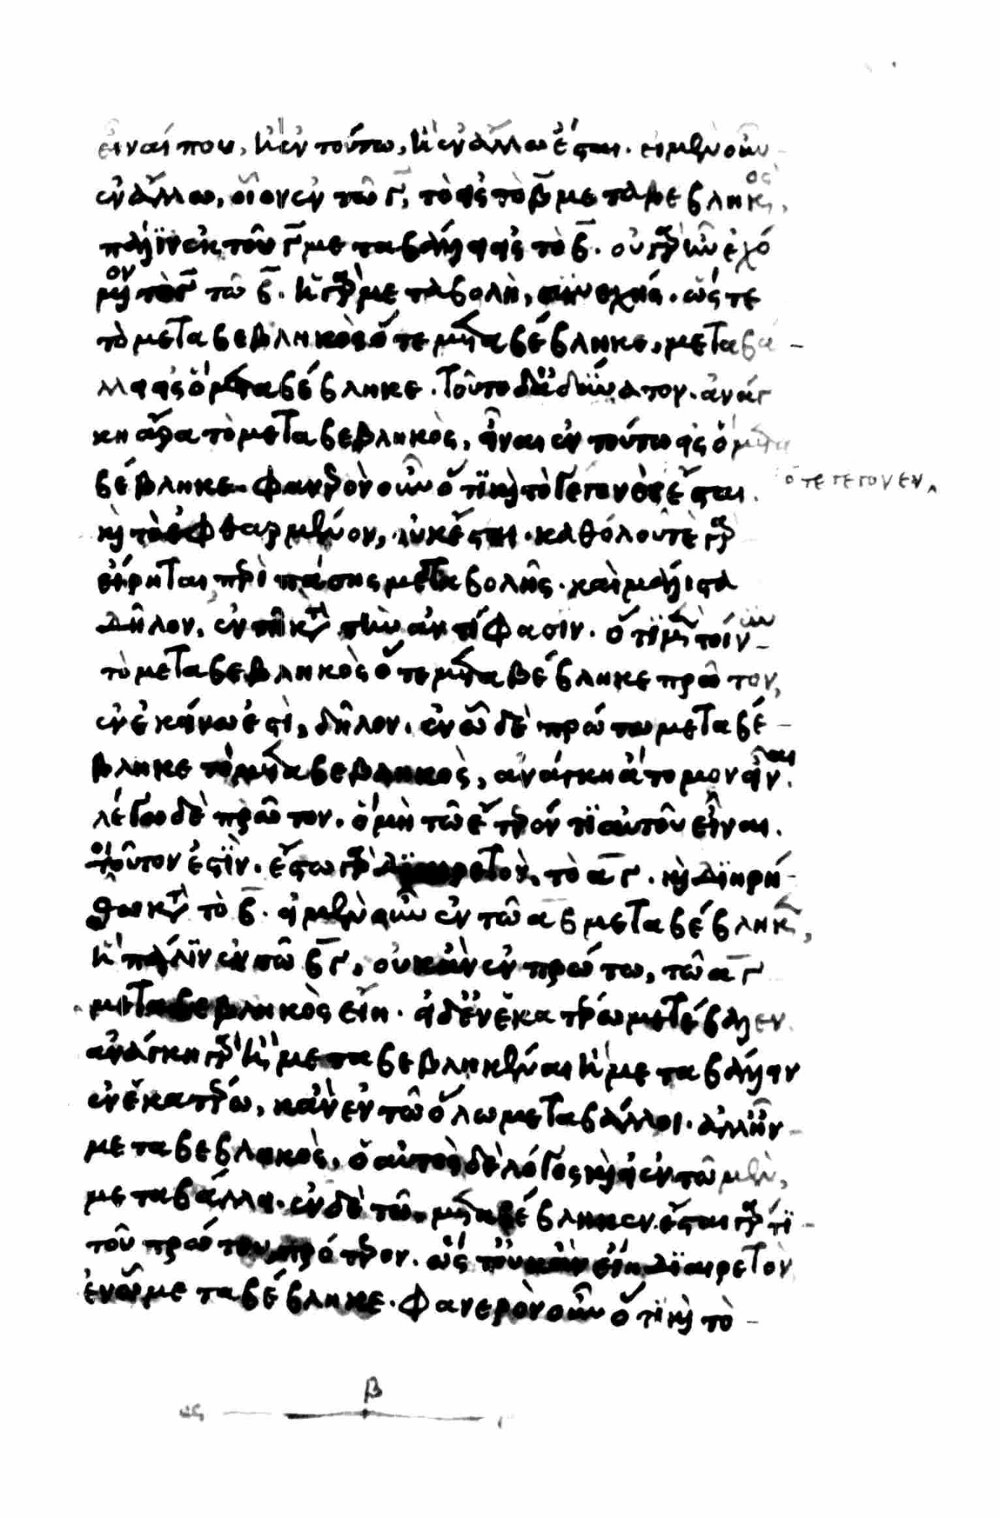 εἶναί που, ἢ ἐν τούτω, ἢ ἐν ἄλλω ἔσται. εἰ μὲν οὖν
ἐν ἄλλω, οἷον ἐν τῶ γ, τὸ εἰς τὸ β μεταβεβληκός,
πάλιν ἐκ τοῦ γ μεταβάλλει εἰς τὸ β. οὐ γὰρ ἦν ἐχό
μενον τὸ γ τῶ β. ἡ γὰρ μεταβολὴ, συνεχής. ὥστε
τὸ μεταβεβληκὸς ὅτε μεταβέβληκε, μεταβά
λλει εἰς ὃ μεταβέβληκε. τοῦτο δὲ ἀδύνατον. ἀνάγ
κη ἄρα τὸ μεταβεβληκὸς, εἶναι ἐν τούτω εἰς ὃ μετα
βέβληκε. φανερὸν οὖν ὅτι καὶ τὸ γεγονὸς ἔσται.
ὅτε γέγονεν
καὶ τὸ ἐφθαρμένον, οὐκ ἔσται. καθόλου τε γὰρ
εἴρηται περὶ πάσης μεταβολῆς. καὶ μάλιστα
δῆλον, ἐν τῆ κατὰ τὴν ἀντίφασιν. ὅτι μὲν τοίνυν
τὸ μεταβεβληκὸς ὅτε μεταβέβληκε πρῶτον,
ἐν ἐκείνω ἐστὶ, δῆλον. ἐν ὧ δὲ πρώτω μεταβέ
βληκε τὸ μεταβεβληκὸς, ἀνάγκη ἄτομον εἶναι.
λέγω δὲ πρῶτον. ὃ μὴ τῶ ἕτερόν τι αὐτοῦ εἶναι.
τοιοῦτον ἐστὶν. ἔστω γὰρ διαιρετὸν, τὸ α γ. καὶ διηρή
σθω κατὰ τὸ β. εἰ μὲν οὖν ἐν τῶ α β μεταβέβληκεν,
ἢ πάλιν ἐν τῶ β γ, οὐκ ἂν ἐν πρώτω, τῶ α γ
μεταβεβληκὸς εἴη. εἰ δ' ἐν ἑκατέρω μετέβαλλεν
ἀνάγκη γὰρ ἢ μεταβεβληκέναι ἢ μεταβάλλειν
ἐν ἑκατέρω, κἂν ἐν τῶ ὅλω μεταβάλλοι. ἀλλ' ἦν
μεταβεβληκὸς, ὁ αὐτὸς δὲ λόγος καὶ εἰ ἐν τῶ μὲν,
μεταβάλλει. ἐν δὲ τῶ μεταβέβληκεν. ἔσται γάρ τι
τοῦ πρώτου πρότερον. ὥστ' οὐκ ἂν εἴη διαιρετὸν
ἐν ὧ μεταβέβληκε. φανερὸν οὖν ὅτι καὶ τὸ
β